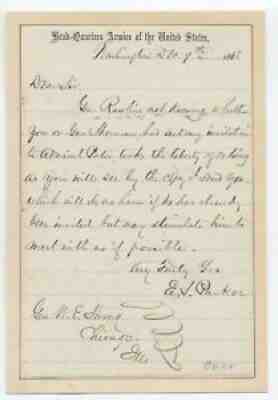 Head-Quarters Armies of the United States,
Washington Dec. 9th 1868
Dear Sir
Gen Rawlins not knowing whether
you or Gen Sherman has sent any invitation
to Admiral Porter took the liberty of doing
as you will see by the copy I send you
which will do no harm if he has already
been invited but may stimulate him to
meet with us if possible.
Very Truly Yrs
E. S. Parker
Gen W. E. Strong
Chicago
Ills